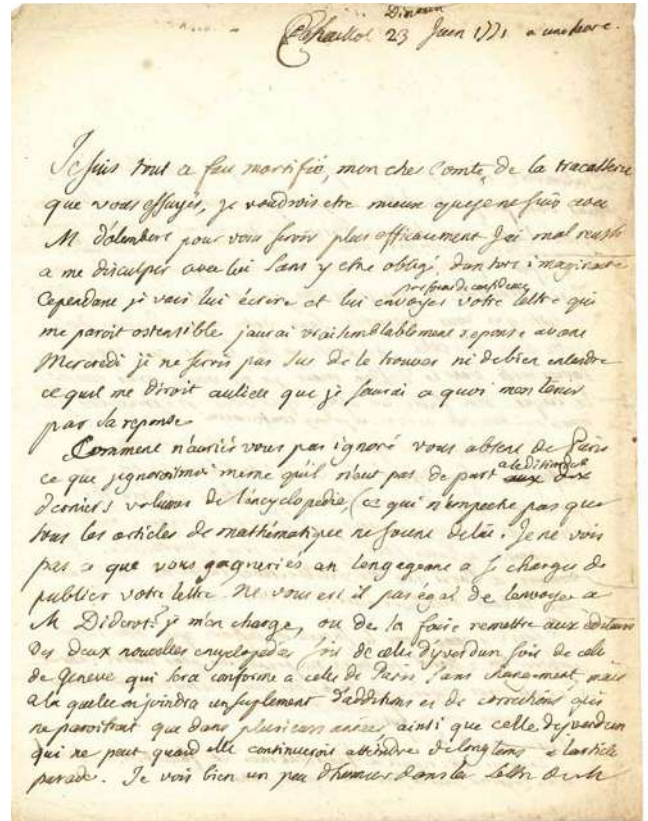 Chaillot 23 Juin 1771 a une heure.
Je suis tout a fau mortifié, mon cher Comte, de la tracasserie
que vous essuyés, je voudrois etre mieux que je ne suis avec
M d'alembert pour vous servir plus efficacement J'ai mal reussi
a me disculper avec lui sans y etre obligé, d'un tort imaginaire
Cependant je vais lui écrire et lui envoyer votre lettre qui
me paroit ostensible j'aurai vraisemblablement reponse avant
Mercredi je ne serois pas sur de le trouver ni de bien entendre
ce quil me diroit aulieu que je saurai a quoi m'en tenir
par sa reponse
Comment n'auriés vous pas ignoré vous absent de Paris
ce que j'ignorois moi meme qu'il n'eut pas de part a l'edition des
derniers volumes de l'encyclopedie, (ce qui n'empeche pas que
tous les articles de mathématique ne soient de lui. Je ne vois
pas ce que vous gagneriés en l'engageant a se charger de
publier votre lettre. Ne vous est il pas égal de l'envoyer a
M Diderot? je m'en charge, ou de la faire remettre aux éditeurs
des deux nouvelles encyclopedies soit de celle d'yverdun soit de celle
de Geneve qui sera conforme a celle de Paris sans changement, mais
a la quelle on joindra un suplement d'additions et de corrections qui
ne paroitront que dans plusieurs années ainsi que celle d'yverdun
qui ne peut quand elle continueroit atteindre de longtems a l'article
parade. Je vois bien un peu d'humeur dans la lettre de M